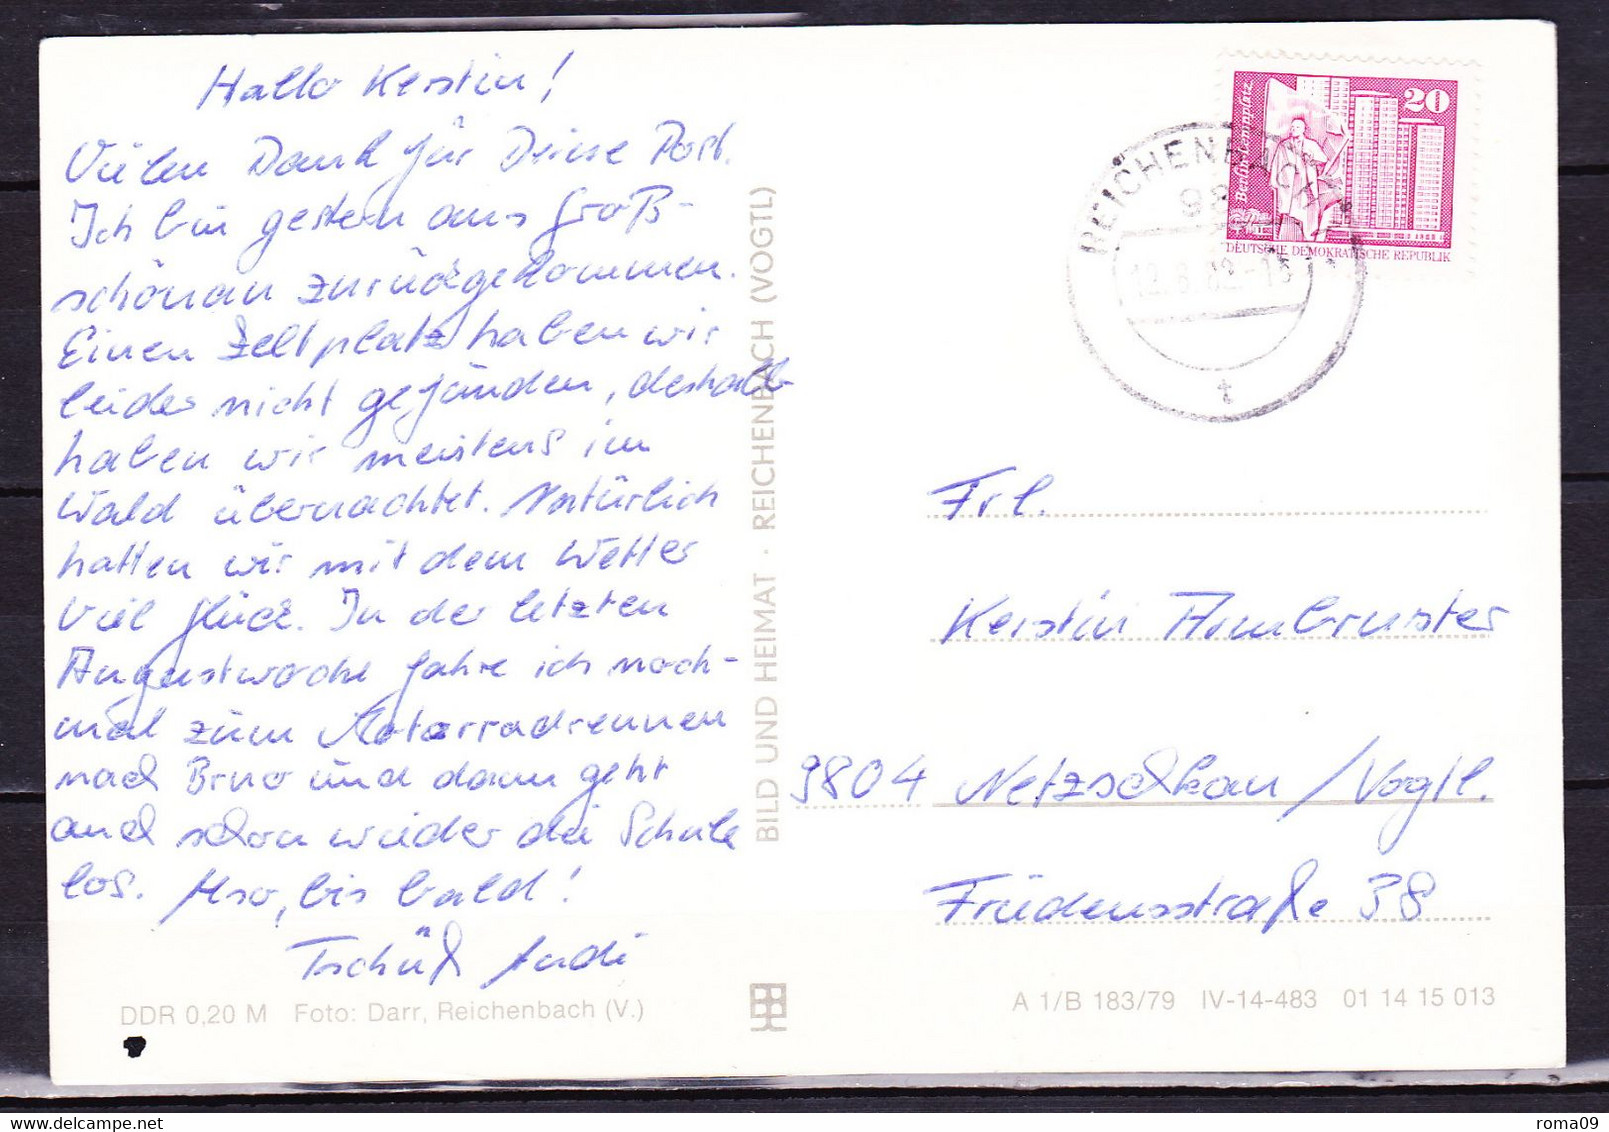 Hallo Kerstin!
Vielen Dank für Deine Post.
Ich bin gestern aus Groß-
schönau zurückgekommen.
Einen Zeltplatz haben wir
leider nicht gefunden, deshalb
haben wir meistens im
Wald übernachtet. Natürlich
hatten wir mit dem Wetter
viel Glück. In der letzten
Augustwoche fahre ich noch-
mal zum Motorradrennen
nach Brno und dann geht
auch schon wieder die Schule
los. Also, bis bald!
Tschüß Andi
DDR 0,20 M Foto: Darr, Reichenbach (V.)
BILD UND HEIMAT · REICHENBACH (VOGTL)
20
Berlin, Leninplatz
DEUTSCHE DEMOKRATISCHE REPUBLIK
REICHENBACH
98
12.8.82-15
t
Frl.
Kerstin Armbruster
9804 Netzschkau/Vogtl.
Friedensstraße 38
A 1/B 183/79 IV-14-483 01 14 15 013
roma09